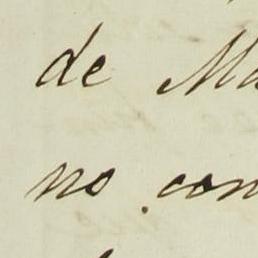 de Ma
no con